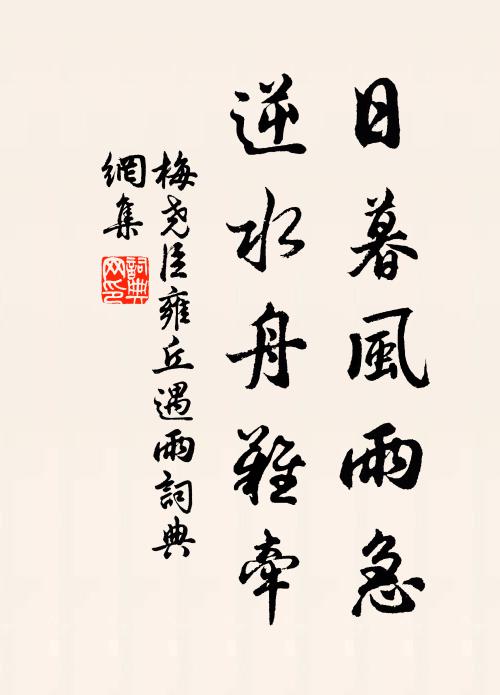 日暮風雨急
逆水舟難牽
梅堯臣雍丘遇雨詞典
網集
詞典
网印